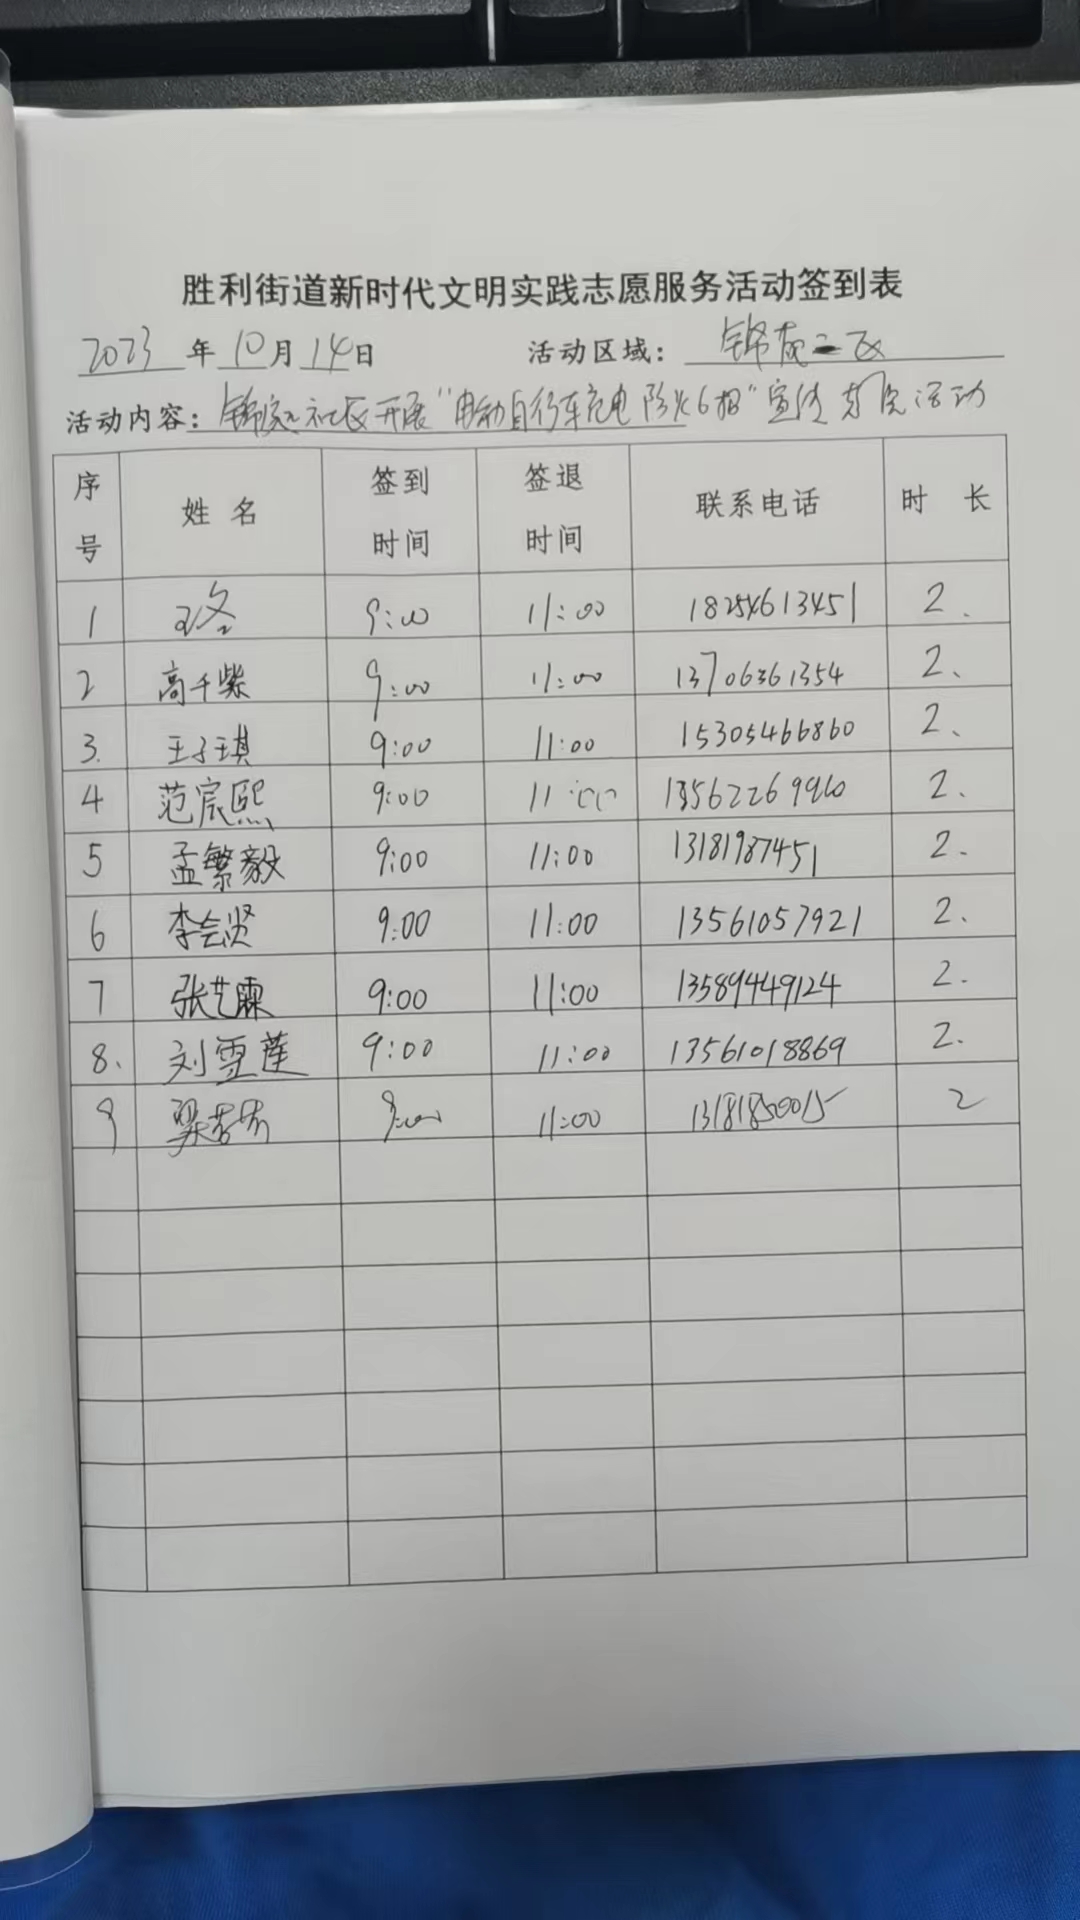 胜利街道新时代文明实践志愿服务活动签到表
2023 年 10 月 14 日 活动区域： 锦苑二区
活动内容： 锦苑社区开展“电动自行车充电防火6招”宣传 活动
序号 姓名 签到时间 签退时间 联系电话 时长
1 9:00 11:00 18254613451 2.
2 高千紫 9:00 11:00 13706361354 2.
3. 王子琪 9:00 11:00 15305466860 2.
4 范宸熙 9:00 11:00 2.
5 孟繁毅 9:00 11:00 13181987451 2.
6 李会贤 9:00 11:00 13561057921 2.
7 张艺霖 9:00 11:00 13589449124 2.
8. 刘雪莲 9:00 11:00 13561018869 2.
9 梁芳芳 9:00 11:00 13181850015 2